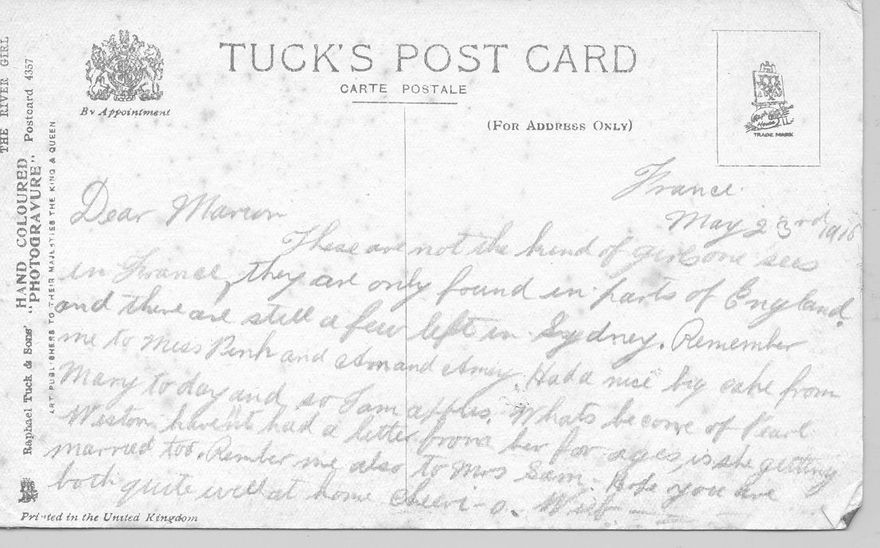 TUCK'S POST CARD
CARTE POSTALE
By Appointment
(FOR ADDRESS ONLY)
TRADE MARK
THE RIVER GIRL
Raphael Tuck & Sons' HAND COLOURED "PHOTOGRAVURE" Postcard 4357
ART PUBLISHERS TO THEIR MAJESTIES THE KING & QUEEN
France.
May 23rd 1916
Dear Marion
These are not the kind of girls one sees
in France, they are only found in parts of England.
and there are still a few left in Sydney. Remember
me to Miss Penk and and Amy. Had a nice big cake from
Mary to day and so I am apples. Whats become of Pearl
Weston, havent had a letter from her for ages, is she getting
married too. Rember me also to Mrs Sam. Hope you are
both quite well at home Cheer-o. Wilf
Printed in the United Kingdom